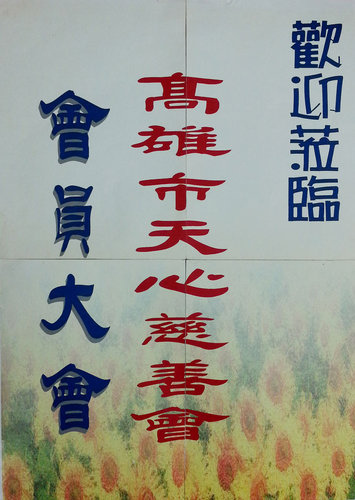 歡迎蒞臨
高雄市天心慈善會
會員大會